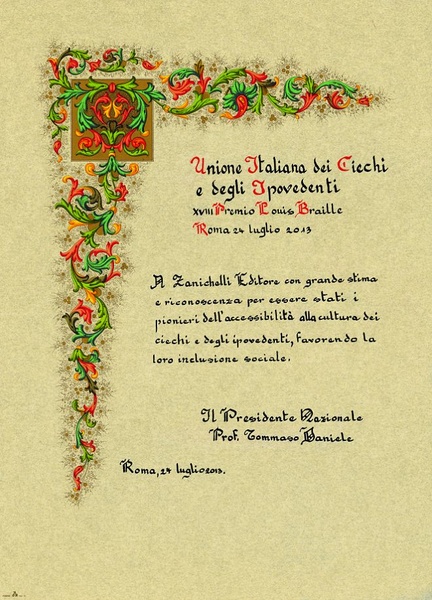 Unione Italiana dei Ciechi
e degli Ipovedenti
XVIII Premio Louis Braille
Roma 24 luglio 2013
A Zanichelli Editore con grande stima
e riconoscenza per essere stati i
pionieri dell'accessibilità alla cultura dei
ciechi e degli ipovedenti, favorendo la
loro inclusione sociale.
Il Presidente Nazionale
Prof. Tommaso Daniele
Roma, 24 luglio 2013.